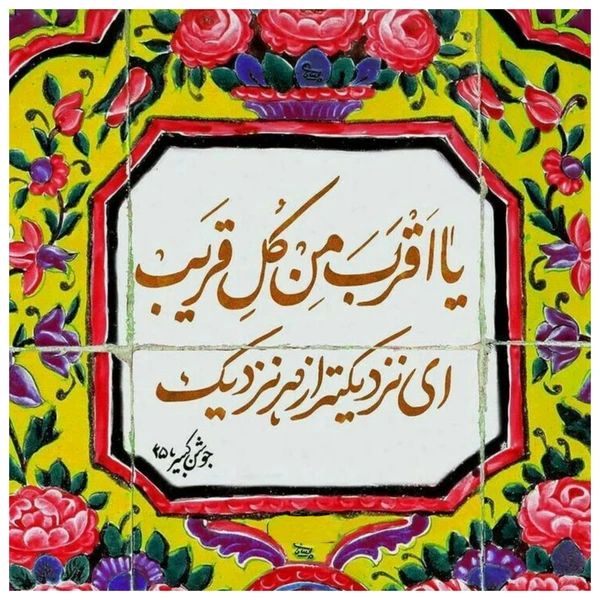 یا اَقْرَبَ مِن کُلِ قَریب
ای نزدیکتر از هر نزدیک
جوشن کبیر، ۲۵